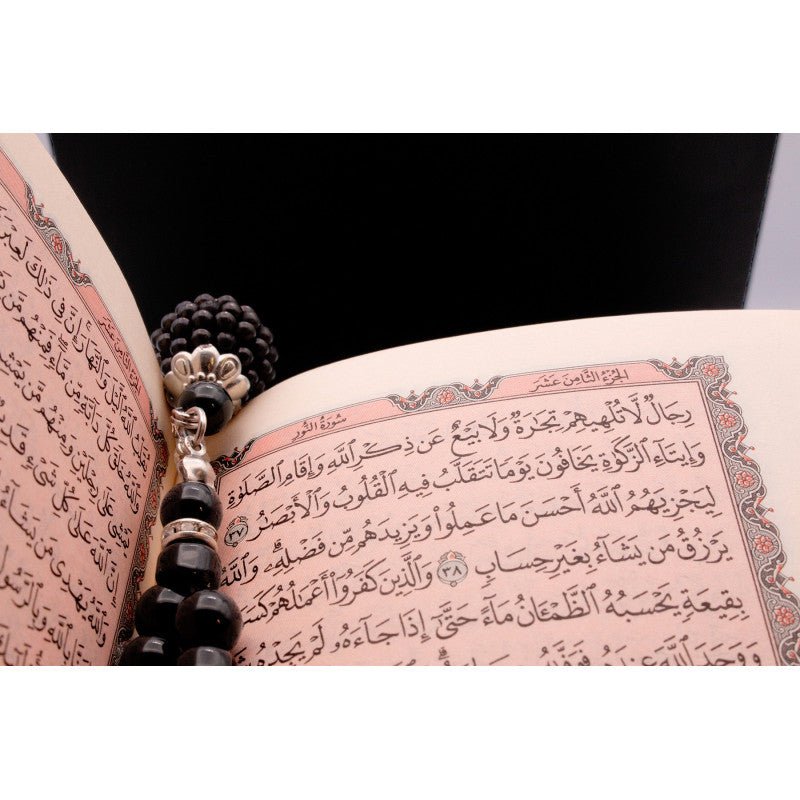 الجُزْءُ الثَّامِنَ عَشَرَ
سُورَةُ النُّورِ
رِجَالٌ لَّا تُلْهِيهِمْ تِجَٰرَةٌ وَلَا بَيْعٌ عَن ذِكْرِ ٱللَّهِ وَإِقَامِ ٱلصَّلَوٰةِ
وَإِيتَآءِ ٱلزَّكَوٰةِ يَخَافُونَ يَوْمًا تَتَقَلَّبُ فِيهِ ٱلْقُلُوبُ وَٱلْأَبْصَٰرُ ٣٧
لِيَجْزِيَهُمُ ٱللَّهُ أَحْسَنَ مَا عَمِلُوا۟ وَيَزِيدَهُم مِّن فَضْلِهِۦ ۗ وَٱللَّهُ
يَرْزُقُ مَن يَشَآءُ بِغَيْرِ حِسَابٍ ٣٨ وَٱلَّذِينَ كَفَرُوٓا۟ أَعْمَٰلُهُمْ كَسَ
بِقِيعَةٍ يَحْسَبُهُ ٱلظَّمْـَٔانُ مَآءً حَتَّىٰٓ إِذَا جَآءَهُۥ لَمْ يَجِدْهُ
وَوَجَدَ ٱللَّهَ عِندَهُۥ فَوَفَّىٰهُ
يُقَلِّبُ ٱللَّهُ ٱلَّيْلَ وَٱلنَّهَارَ ۚ إِنَّ فِى ذَٰلِكَ لَعِبْرَ
وَٱللَّهُ خَلَقَ كُلَّ دَآبَّةٍ مِّن مَّآءٍ ۖ فَمِنْهُم مَّن
يَمْشِى عَلَىٰ رِجْلَيْنِ وَمِنْهُم مَّن يَمْشِى
إِنَّ ٱللَّهَ عَلَىٰ كُلِّ شَىْءٍ قَدِي
وَٱللَّهُ يَهْدِى مَن يَشَآءُ
بِٱللَّهِ وَبِٱلرَّسُولِ